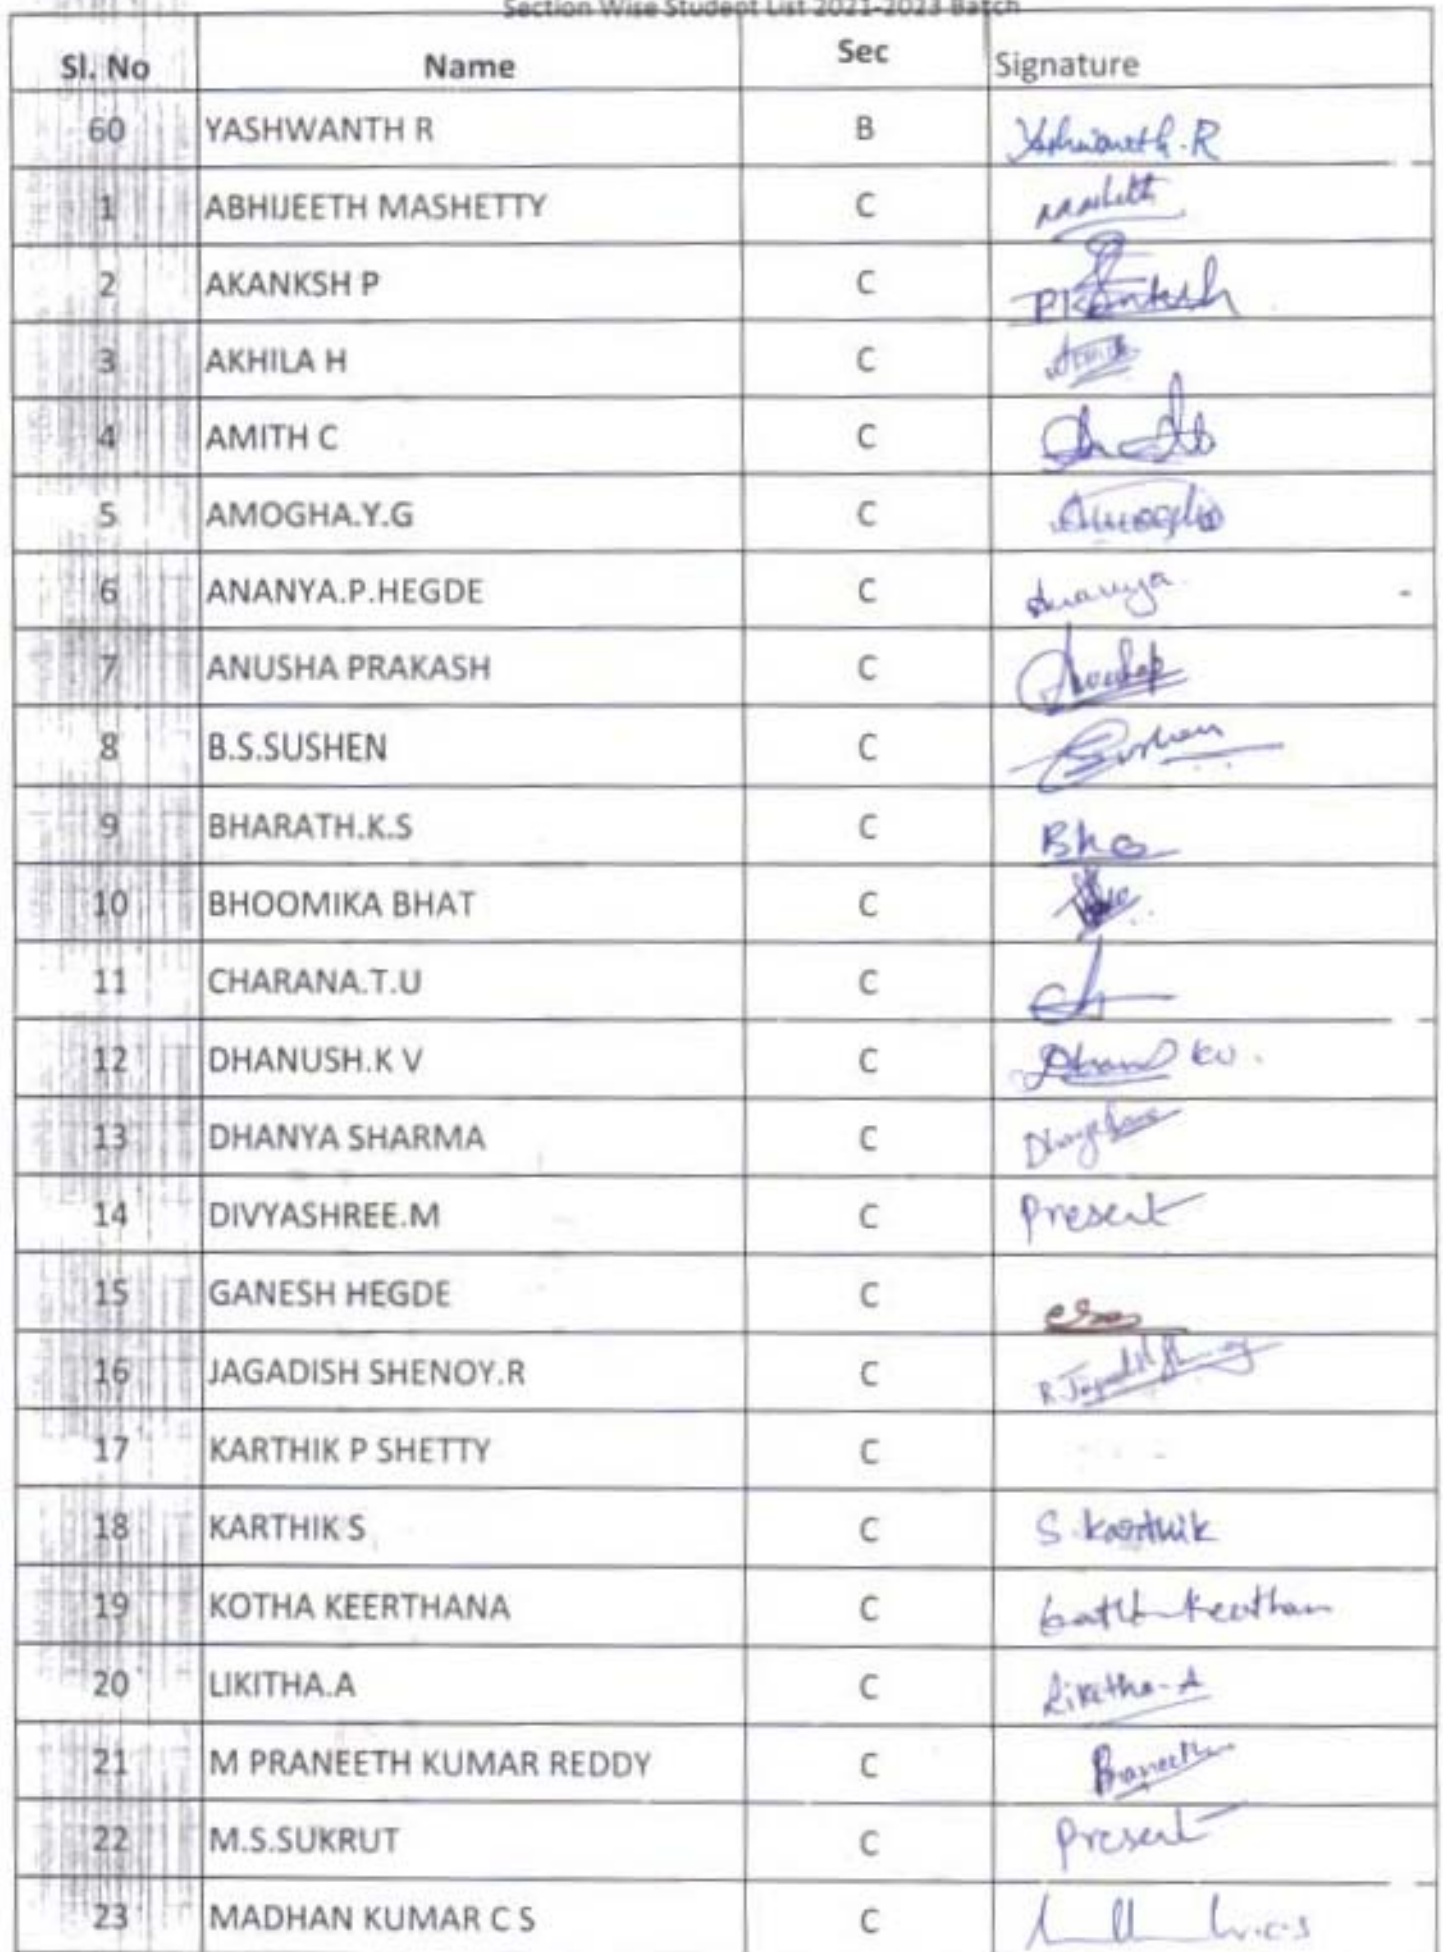 Section Wise Student List 2021-2023 Batch
Sl. No Name Sec Signature
60 YASHWANTH R B Yashwanth.R
1 ABHIJEETH MASHETTY C
2 AKANKSH P C
3 AKHILA H C
4 AMITH C C
5 AMOGHA.Y.G C Amogha
6 ANANYA.P.HEGDE C Ananya
7 ANUSHA PRAKASH C
8 B.S.SUSHEN C Sushen
9 BHARATH.K.S C
10 BHOOMIKA BHAT C
11 CHARANA.T.U C
12 DHANUSH.K V C
13 DHANYA SHARMA C
14 DIVYASHREE.M C Present
15 GANESH HEGDE C
16 JAGADISH SHENOY.R C R.Jagadish
17 KARTHIK P SHETTY C
18 KARTHIK S C S.Karthik
19 KOTHA KEERTHANA C
20 LIKITHA.A C Likitha-A
21 M PRANEETH KUMAR REDDY C Praneeth
22 M.S.SUKRUT C Present
23 MADHAN KUMAR C S C